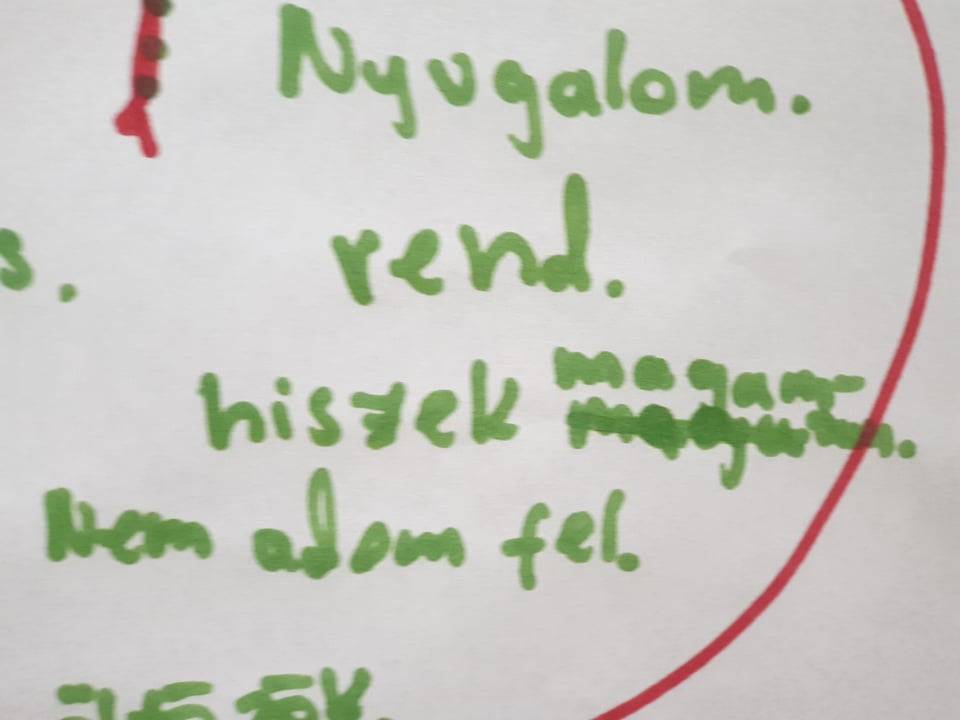 Nyugalom.
s. rend.
hiszek magam
Nem adom fel.